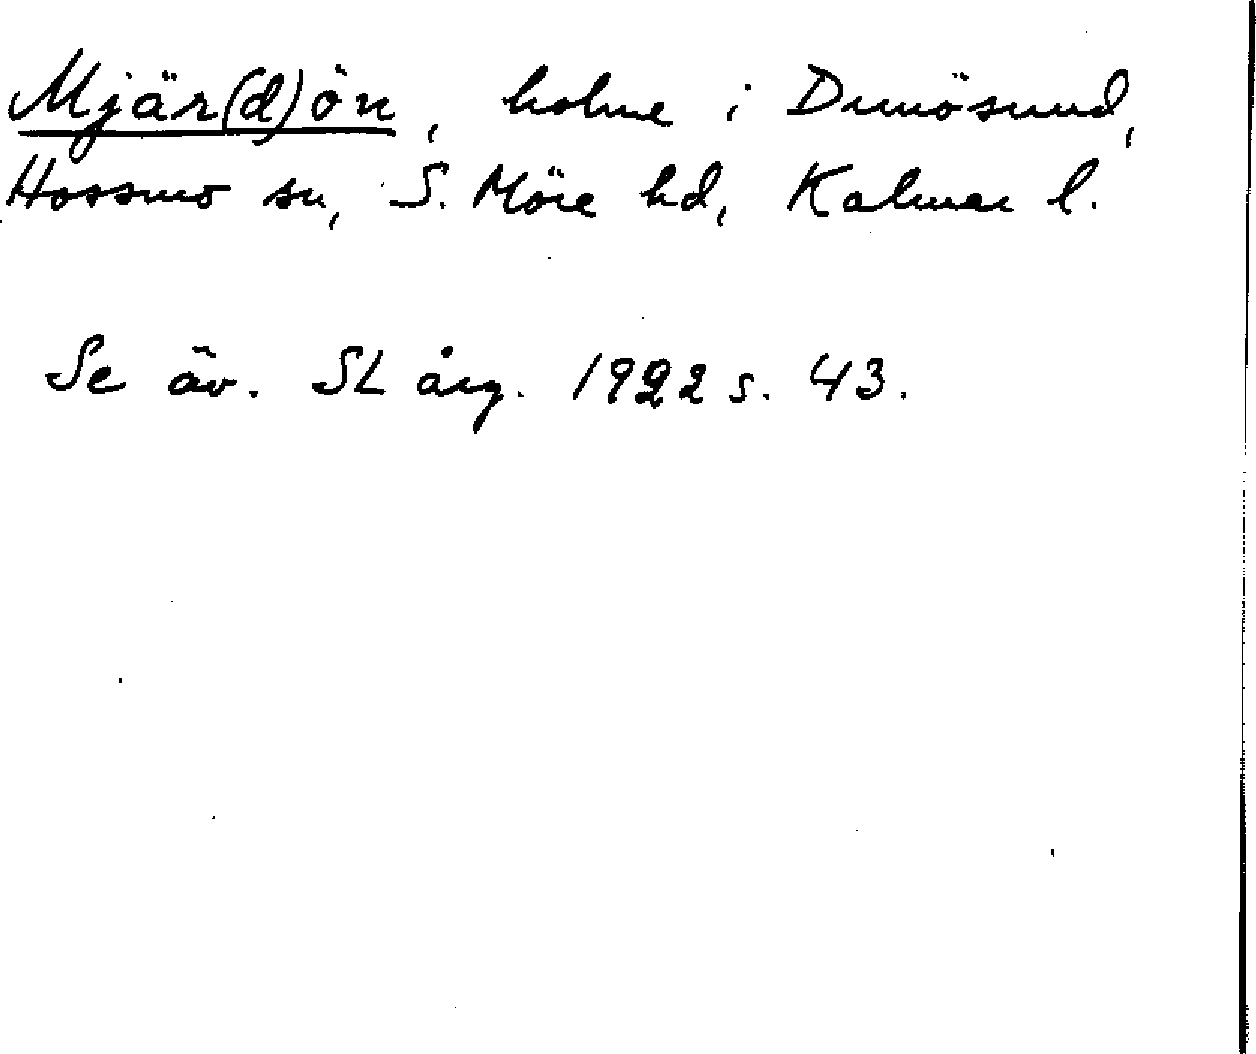 Mjär(d)ön, holme i Dunösund,
Hossmo sn, S. Möre hd, Kalmar l.
Se äv. SL årg. 1922 s. 43.